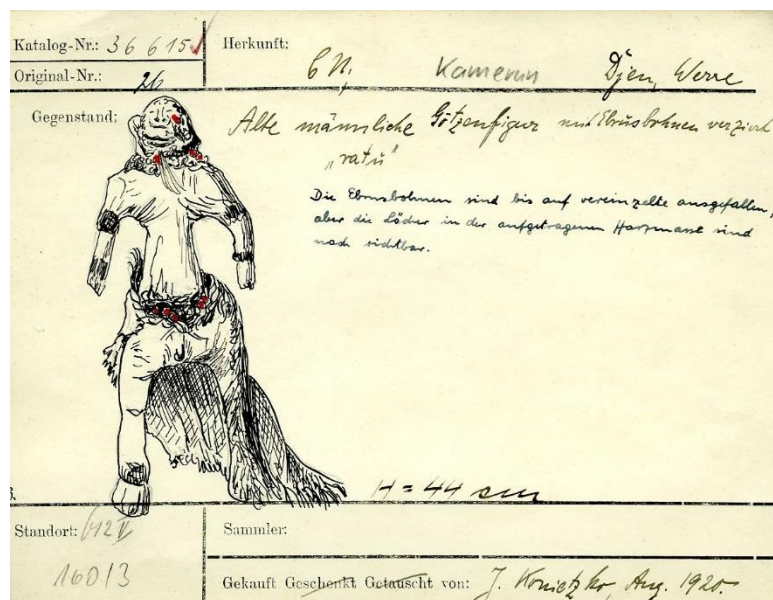 Katalog-Nr.: 36615
Herkunft:
Kamerun Djen, Werre
Original-Nr.: 26
Gegenstand:
Alte männliche Götzenfigur mit Ebrusbohnen verziert
„ratū"
Die Ebrusbohnen sind bis auf vereinzelte ausgefallen,
aber die Löcher in der aufgetragenen Harzmasse sind
noch sichtbar.
H = 44 cm
Standort:
16013
Sammler:
Gekauft Geschenkt Getauscht von: J. Konietzko, Aug. 1920.